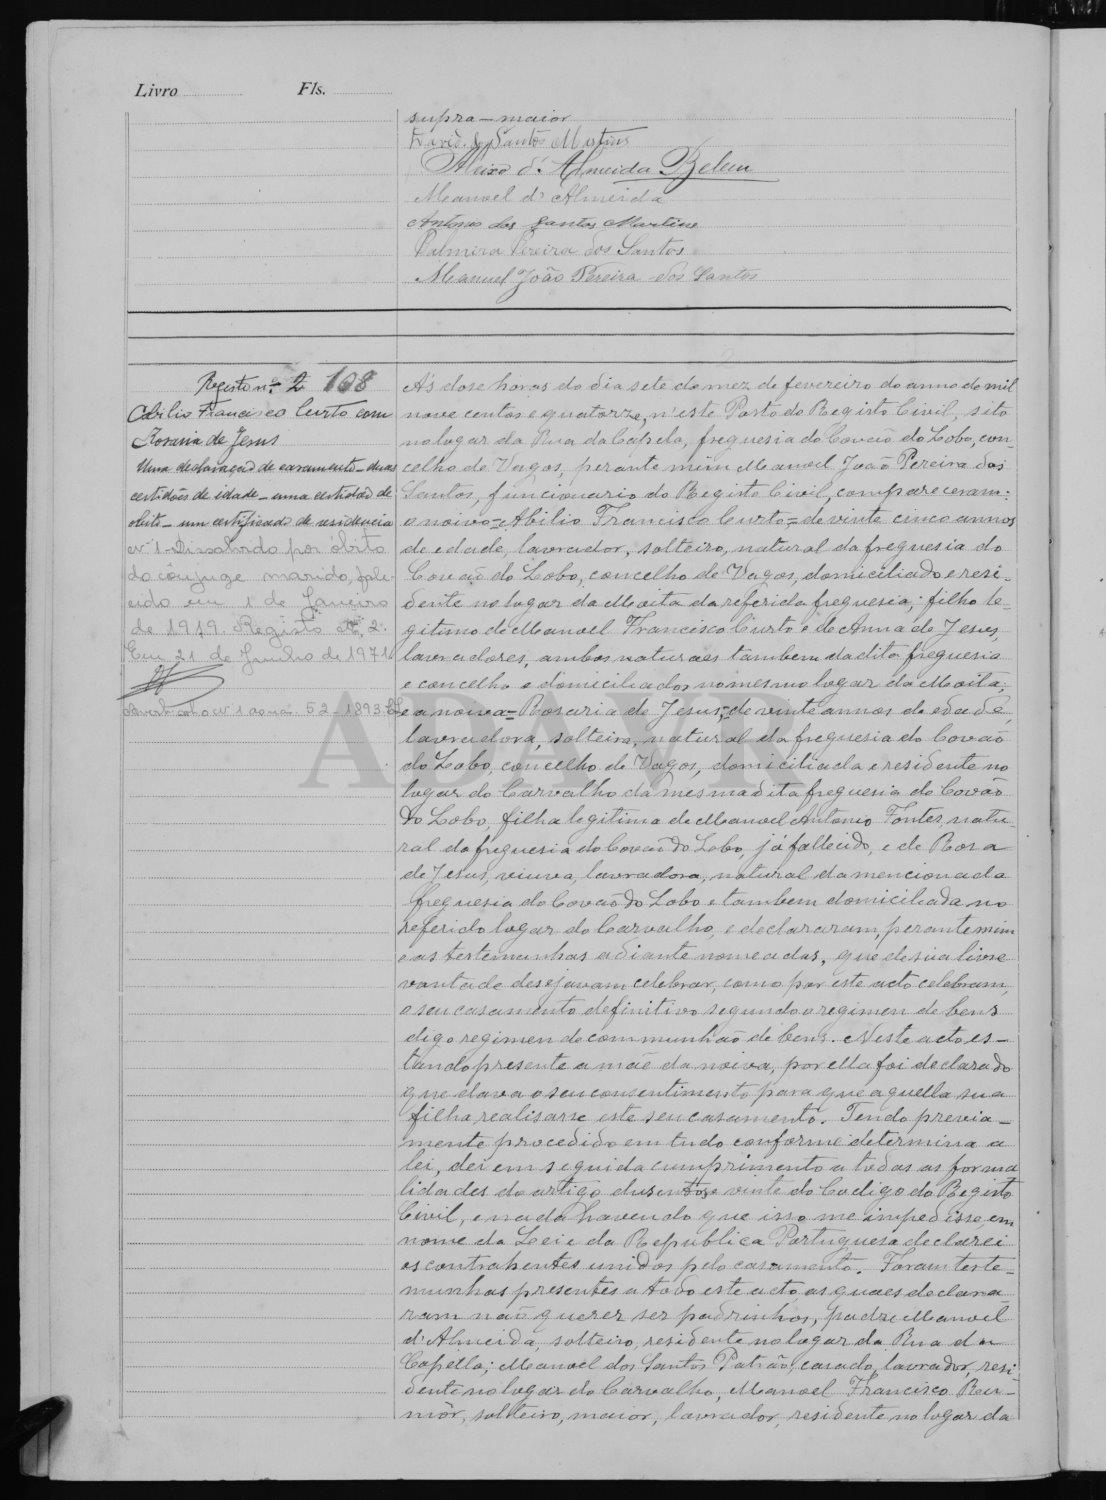 Livro Fls.
supra-maior
David dos Santos Martins
Aleixo d'Almeida Belem
Manoel d'Almeida
Antonio dos Santos Martins
Palmira Pereira dos Santos
Manuel João Pereira dos Santos
Registo nº 2 108
Abilio Francisco Curto com
Rosaria de Jesus
Uma declaração de casamento - duas
certidões de idade - uma certidão de
obito - um certificado de residencia
Nº 1 - Dissolvido por óbito
do cônjuge marido, fale-
cido em 1 de Janeiro
de 1919. Registo nº 2.
Em 21 de Junho de 1971.
nº 1 52-1893
Ás dose horas do dia sete do mez de fevereiro do anno de mil
nove centos e quatorze, n'este Posto do Registo Civil, sito
no logar da Rua da Capela, freguesia do Covão do Lobo, con-
celho de Vagos, perante mim Manoel João Pereira dos
Santos, funcionario do Registo Civil, compareceram:
o noivo = Abilio Francisco Curto = de vinte cinco annos
de edade, lavrador, solteiro, natural da freguesia do
Covão do Lobo, concelho de Vagos, domiciliado e resi-
dente no logar da Moita da referida freguesia; filho le-
gitimo de Manoel Francisco Curto e de Anna de Jesus,
lavradores, ambos naturaes tambem da dita freguesia
e concelho e domiciliados no mesmo logar da Moita;
e a noiva = Rosaria de Jesus, = de vinte annos de edade,
lavradora, solteira, natural da freguesia do Covão
do Lobo, concelho de Vagos, domiciliada e residente no
logar do Carvalho da mesma dita freguesia do Covão
do Lobo, filha legitima de Manoel Antonio Fontes, natu-
ral da freguesia do Covão do Lobo, já fallecido, e de Rosa
de Jesus, viuva, lavradora, natural da mencionada
freguesia do Covão do Lobo e tambem domiciliada no
referido logar do Carvalho, e declararam, perante mim
e as testemunhas adiante nomeadas, que de sua livre
vontade desejavam celebrar, como por este acto celebram,
o seu casamento definitivo segundo o regimen de bens
digo regimen de communhão de bens. Neste acto es-
tando presente a mãe da noiva, por ella foi declarado
que dava o seu consentimento para que aquella sua
filha realisasse este seu casamento. Tendo previa-
mente procedido em tudo conforme determina a
lei, dei em seguida cumprimento a todas as forma
lidades do artigo dusentos e vinte do Codigo do Registo
Civil, e nada havendo que isso me impedisse, em
nome da Lei e da Republica Portuguesa declarei
os contrahentes unidos pelo casamento. Foram teste-
munhas presentes a todo este acto, as quaes declara-
ram não querer ser padrinhos, padre Manoel
d'Almeida, solteiro, residente no logar da Rua da
Capella; Manoel dos Santos Patrão, casado, lavrador, resi-
dente no logar do Carvalho, Manoel Francisco Rei-
môr, solteiro, maior, lavrador, residente no logar da
ADAVR